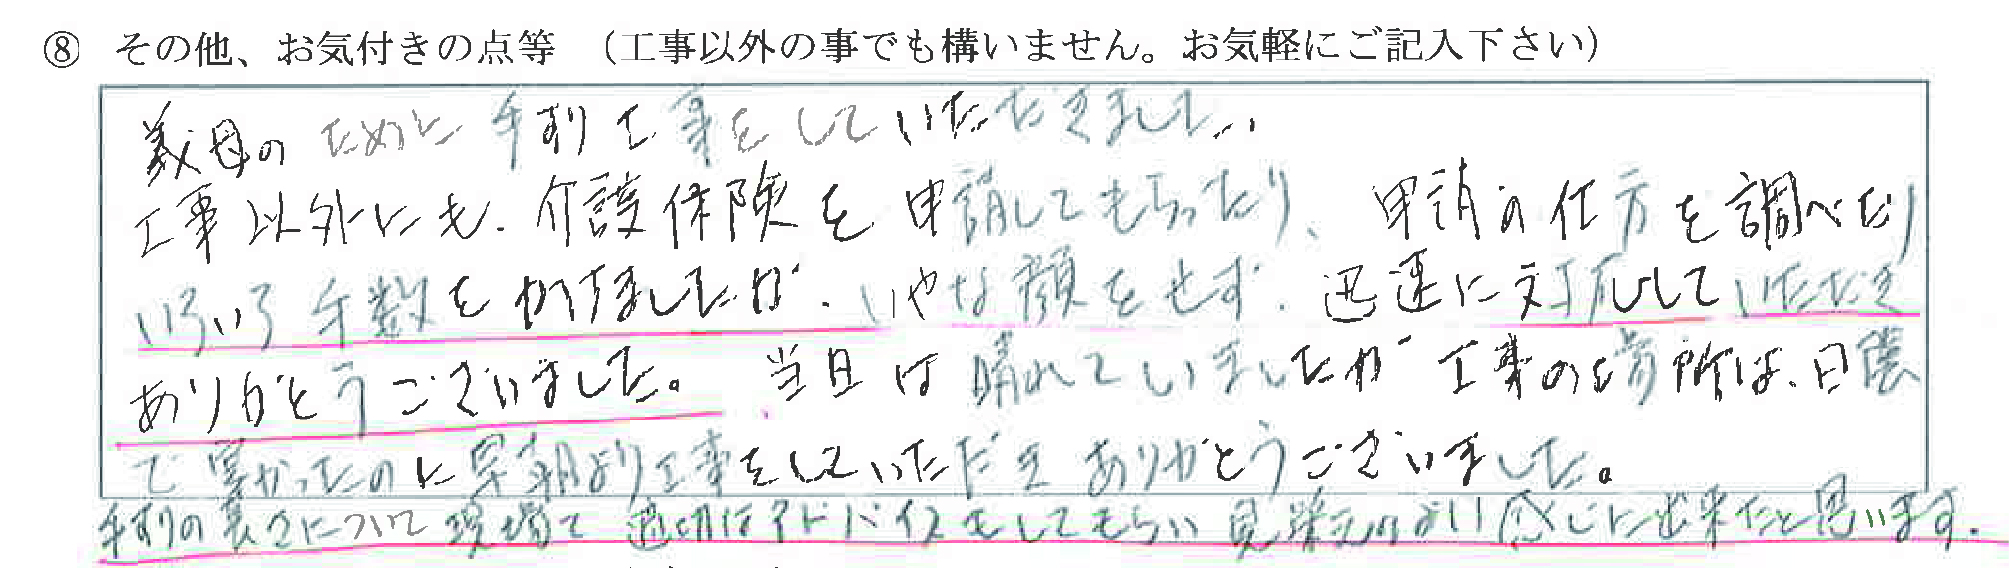 ⑧ その他、お気付きの点等 （工事以外の事でも構いません。お気軽にご記入下さい）
義母のために手すり工事をしていただきました。
工事以外にも、介護保険を申請してもらったり、申請の仕方を調べたり
いろいろ手数をかけましたが、いやな顔をせず、迅速に対応していただき
ありがとうございました。 当日は晴れていましたが工事の場所は、日陰
で寒かったのに早朝より工事をしていただきありがとうございました。
手すりの長さについて現場で適切なアドバイスをしてもらい見栄えがよい感じに出来たと思います。